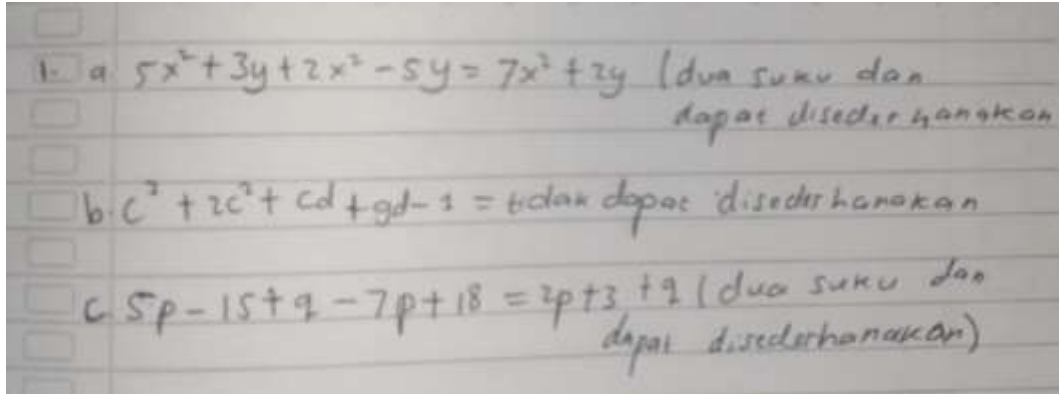 1. a 5x² + 3y + 2x² - 5y = 7x² + 2y (dua suku dan
dapat disederhanakan
b. c² + 2c² + cd + gd - 1 = tidak dapat disederhanakan
c. 5p - 15 + q - 7p + 18 = 2p + 3 + q (dua suku dan
dapat disederhanakan)